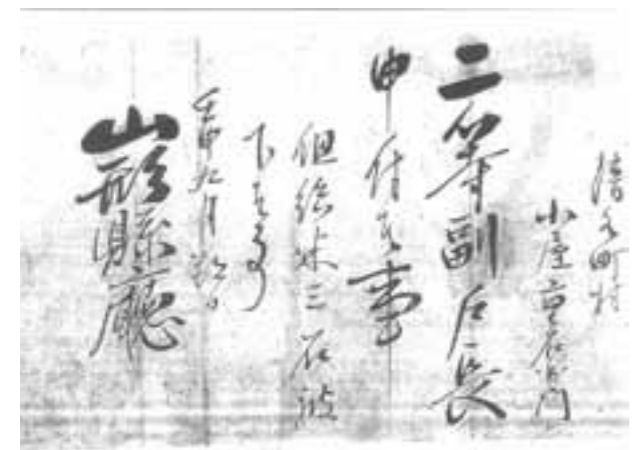 清水町村
小屋市右衛門
二等副戸長
申付候事
但給米三石被
下候事
壬申九月
山形縣廳